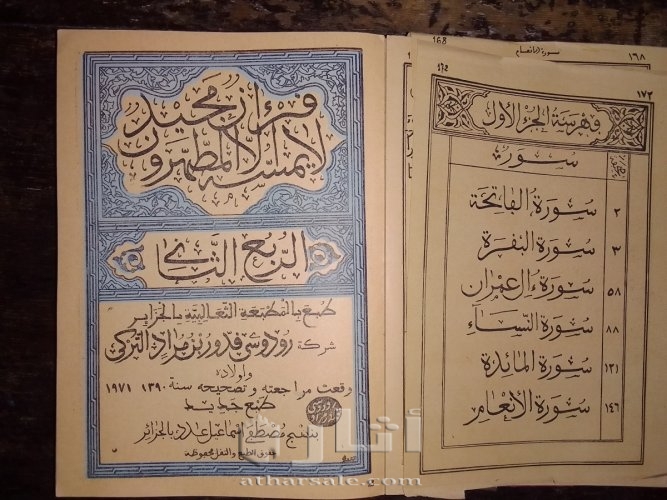 قرءان مجيد
لا يمسه إلا المطهرون
الربع الثاني
طبع بالمطبعة الثعالبية بالجزائر
شركة رودوسي قدور بن مراد التركي
وأولاده
وقعت مراجعته وتصحيحه سنة ١٣٩٠ ١٩٧١
طبع جديد
بنهج مصطفى اسماعيل عدد بالجزائر
حقوق الطبع والنقل محفوظة
168 سورة الانعام ١٦٨
١٧٢
فهرسة الجزء الأول
سورة
سورة الفاتحة ٢
سورة البقرة ٣
سورة ءال عمران ٥٨
سورة النساء ٨٨
سورة المائدة ١٢١
سورة الأنعام ١٤٦
أثار
atharsale.com